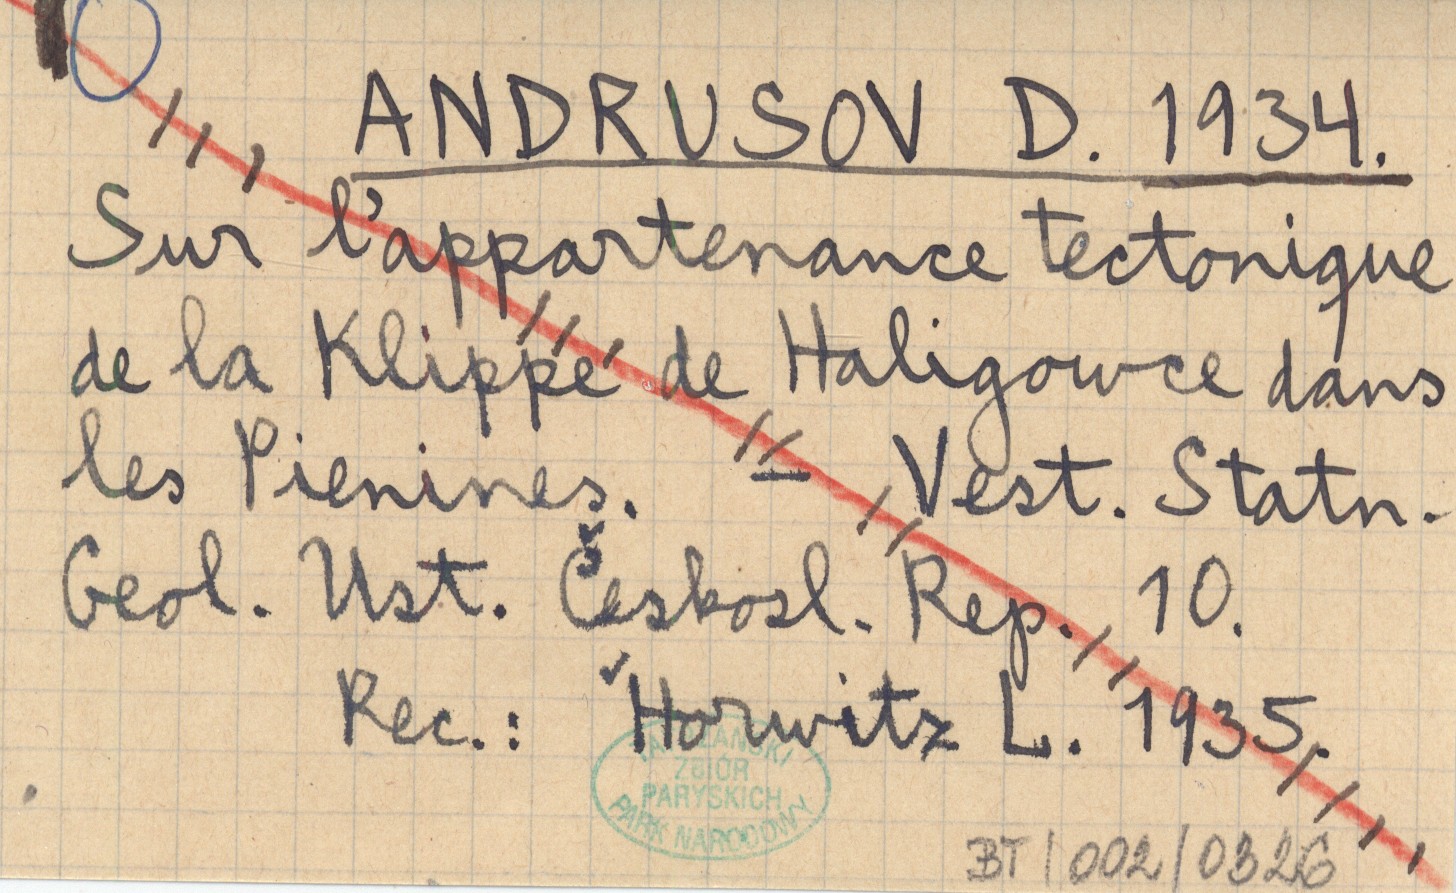 ANDRUSOV D. 1934.
Sur l'appartenance tectonique
de la Klippé de Haligowce dans
les Pienines. — Vest. Statn.
Geol. Ust. Českosl. Rep. 10.
Rec.: Horwitz L. 1935.
TATRZAŃSKI
ZBIÓR
PARYSKICH
PARK NARODOWY
BT/002/0326